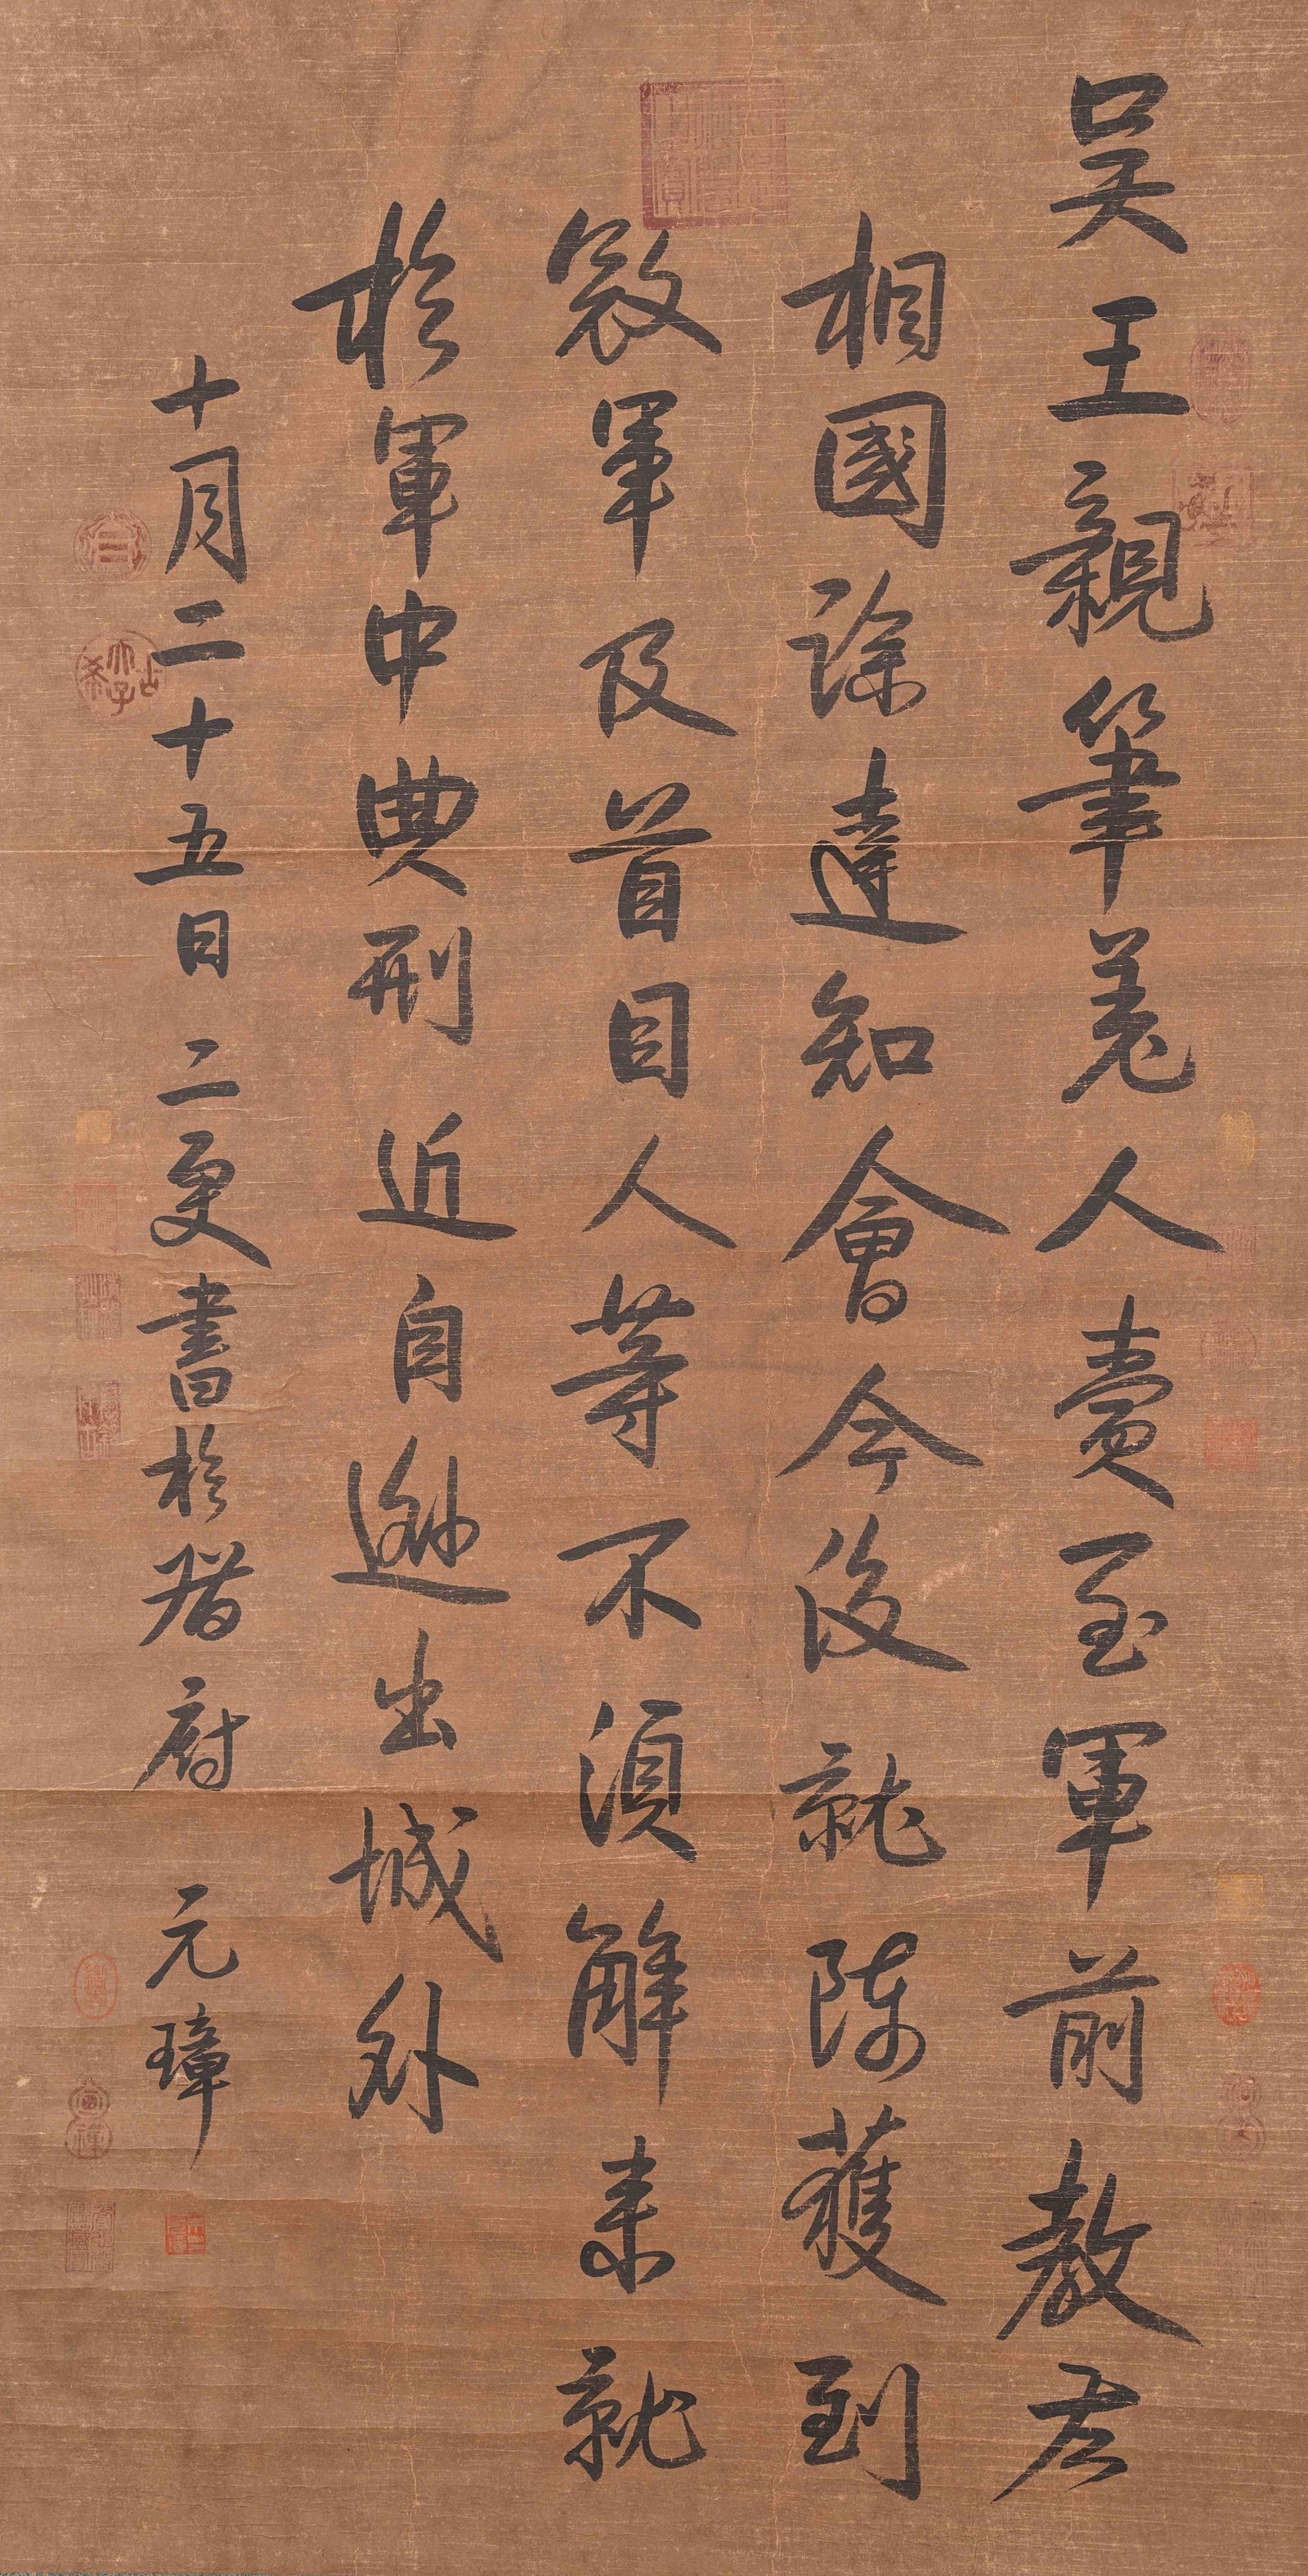 吳王親筆差人賣至軍前教左
相國諭達知會今後就陣獲到
寇軍及首目人等不須解来就
於軍中典刑近自遜出城外
十月二十五日二更書於閣府元璋